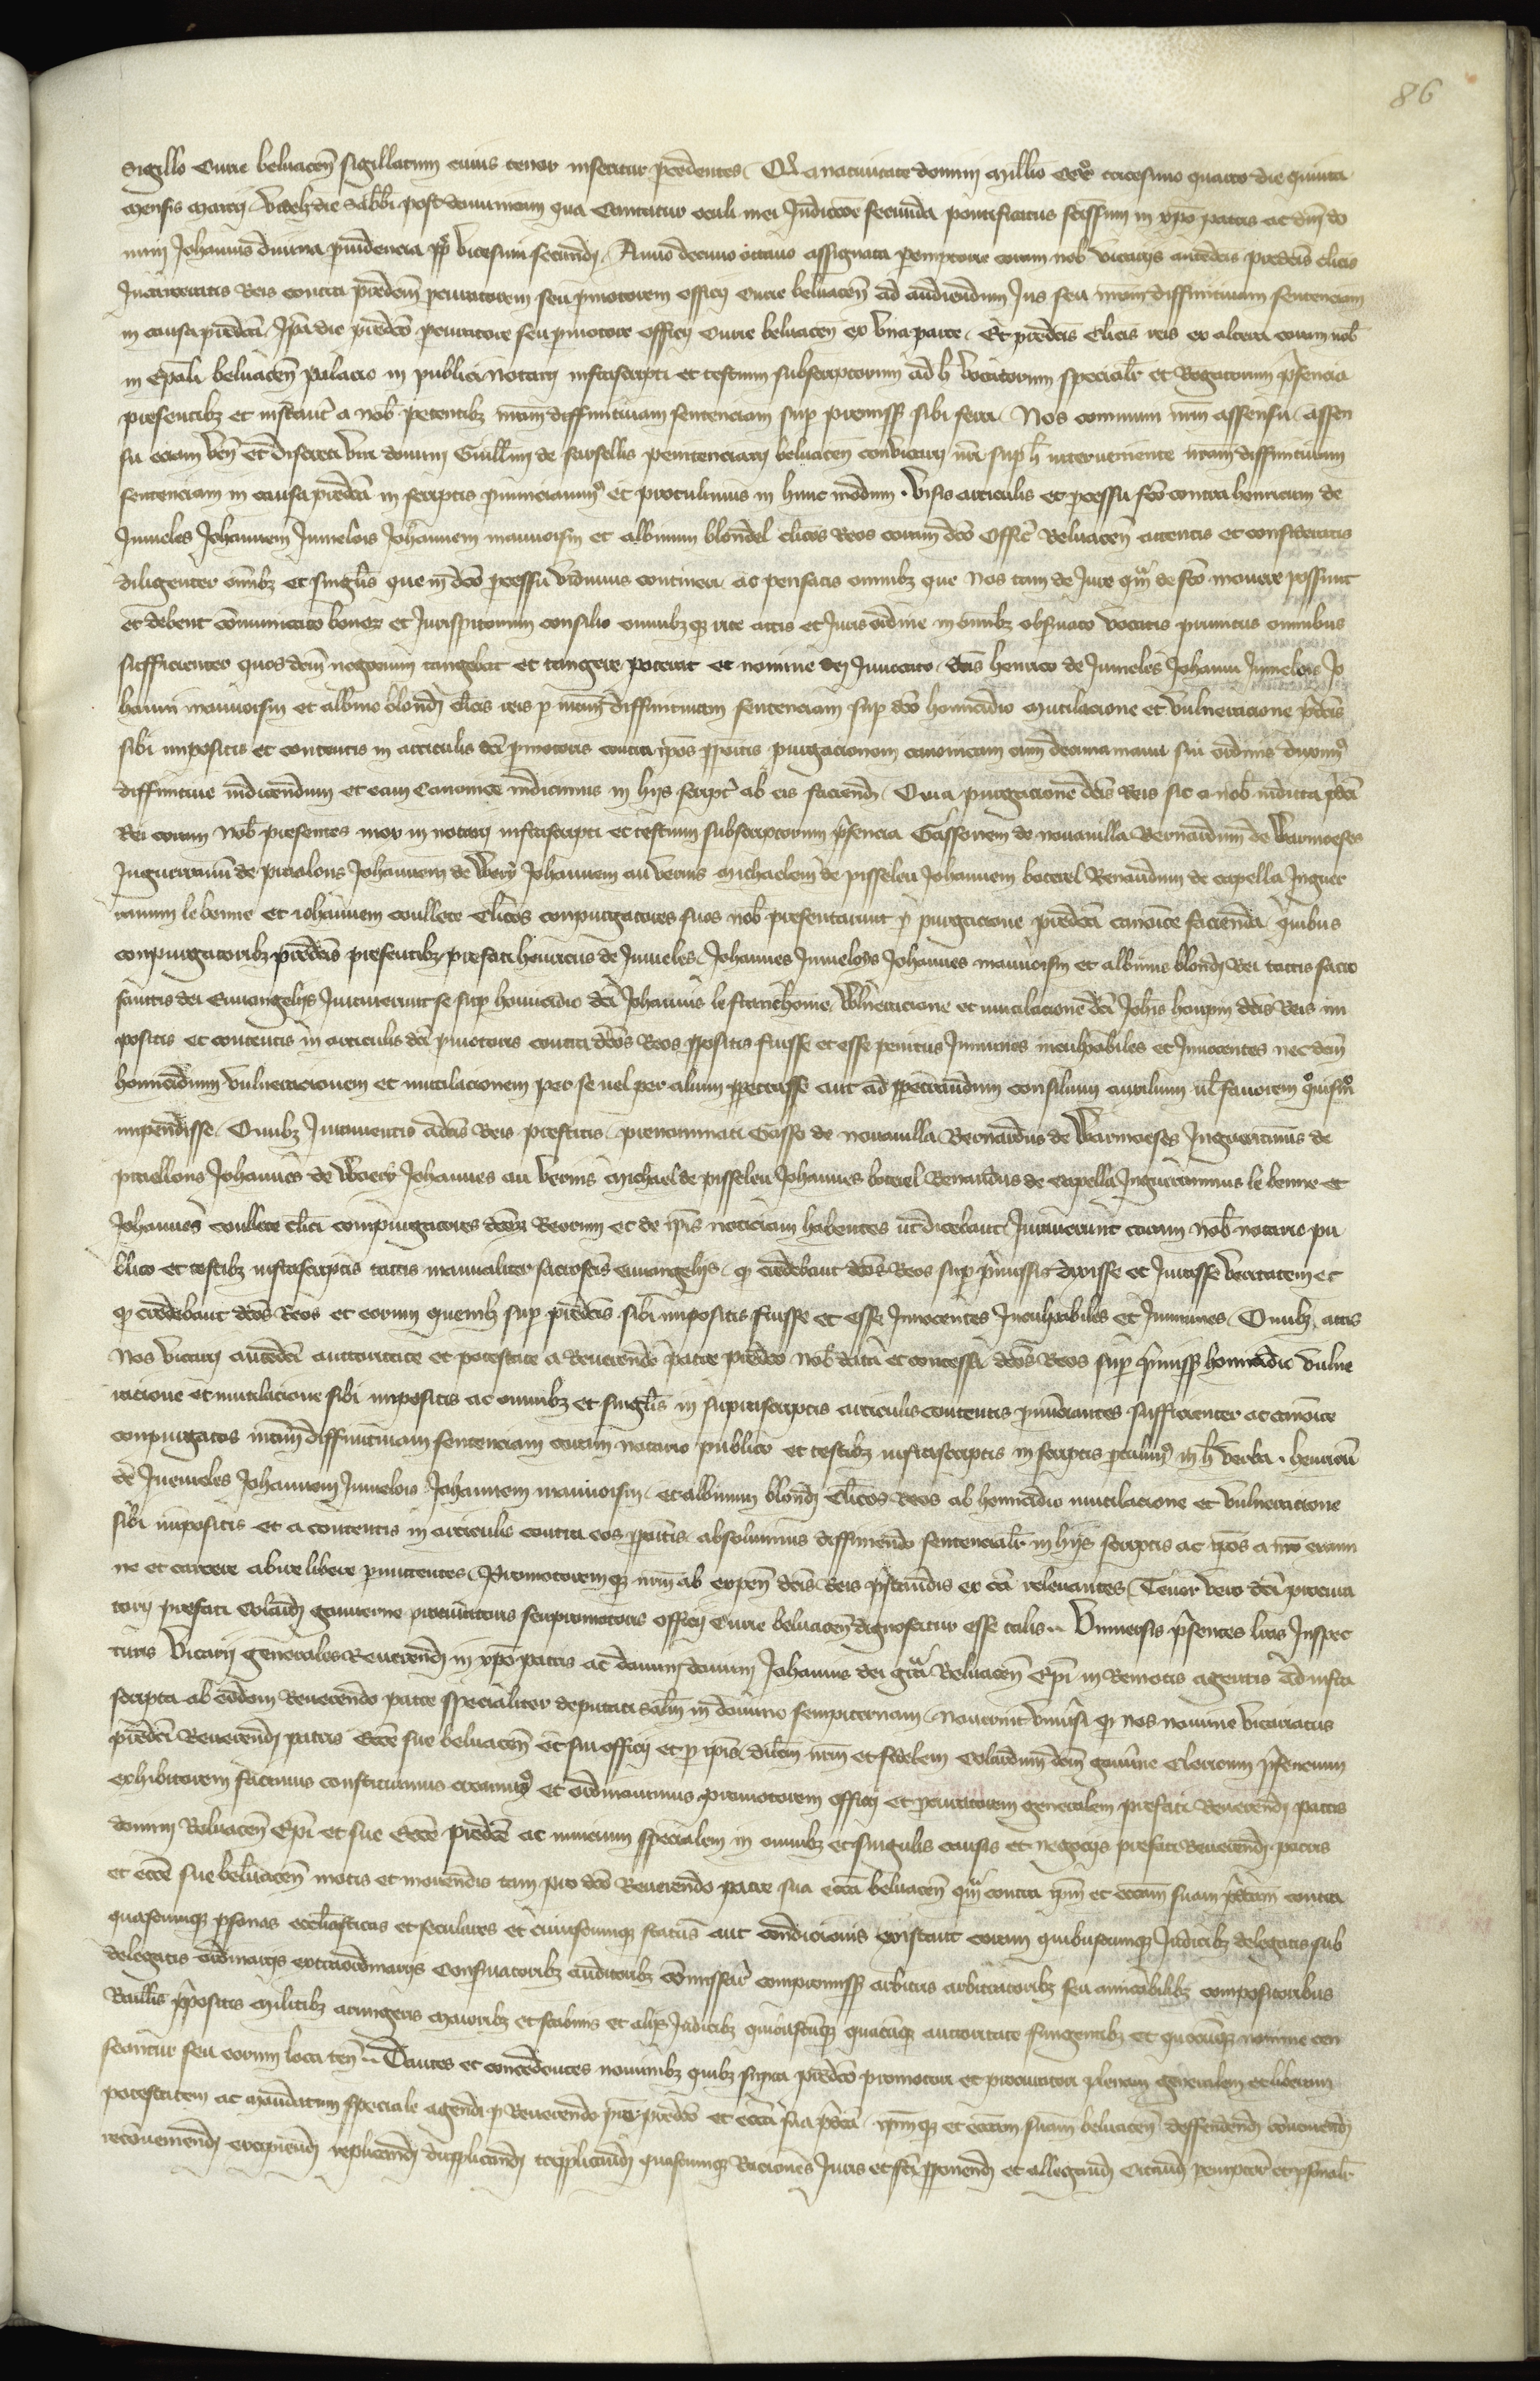 86
Sigillo Curie beluacen̄ sigillatum cuius tenor inseritur p̄cedentes Qd̄ a natiuitate domini millio ccco tricesimo quarto die quinta
mensis marcij videlz die sabb̄i post dominicam qua cantatur oculi mei Indictōe secunda pontificatus sc̄issimi in xpō patris ac dn̄i do
mini Johannis diuina prouidencia pp̄ vicesimi secundi Anno decimo octauo assignata peremptorie coram nob̄ vicarijs antedc̄is predc̄is clicis
Incarceratis Reis contra p̄dc̄m procuratorem seu promotorem officij Curie beluacen̄ ad audiendum Jus seu nr̄am diffinitiuam sentenciam
in causa p̄dc̄a Ipsa die p̄dc̄o procuratore seu promotore officij Curie beluacen̄ ex vna parte Et p̄dc̄is clicis reis ex altera coram nob̄
in Ep̄ali beluacen̄ palacio in publici notarij infrascripti et testium subscriptorum ad h̄ vocatorum specialr̄ et Rogatorum p̄sencia
presentibz et instant̄ a nob̄ petentibz nr̄am diffinitiuam sentenciam sup premiss̄ sibi ferri Nos communi nr̄m assensu assen
su eciam ven̄ et discreti viri domini Guillm̄i de penitenciarij beluacen̄ conuicarij nr̄i sup h̄ interueniente nr̄am diffinitiuam
sentenciam in causa p̄dc̄a in scriptis pronunciamus et protulimus in hunc modum . Visis articulis et processu fc̄o contra henricum de
Jumeles Johannem Jumelois Johannem mauuoisin et albinum blondel clicos Reos coram dc̄o Offic̄ Beluacen̄ attentis et consideratis
diligenter omībz et singlis que in dc̄o processu vidimus contineri ac pensatis omnibz que nos tam de Jure qm̄ de fc̄o mouere possunt
et debent cōmunicato bonor et Jurisperitorum consilio omnibzqz rite actis et Juris ordine in omībz obseruato vocatis primitus omnibus
sufficienter quos dc̄m negocium tangebat et tangere poterat et nomine dei Inuocato dc̄is henrico de Jumeles Johanni Jumelois Jo
hanni mauuoisin et albino blondel clicis reis p nr̄am diffinitiuam sentenciam sup dc̄o homicidio mutilacione et vulneracione p̄dc̄is
sibi impositis et contentis in articulis dc̄i promotoris contra ip̄os ppōitis purgacionem canonicam cum decima manu sui ordinis duximus
diffinitiue indicendum et eam Canonice indicimus in hijs script̄ ab eis faciend̄ Qua purgacione dc̄is Reis sic a nob̄ indicta p̄dc̄i
Rei coram nob̄ presentes mox in notarij infrascripti et testium subscriptorum p̄sencia Gassonem de nouauilla Bernardum de Warmoeses
Inguerranum de Johannem de Wery Johannem au vernis Michaelem de pisseleu Johannem boterel Renaudum de capella Inguer
rannum le benne et Johannem coullete clicos conpurgatores suos nob̄ presentarunt p̄ purgacione p̄dc̄a canōice facienda Quibus
conpurgatoribz p̄dc̄is presentibz prefati henricus de Jumeles Johannes Jumelois Johannes mauuoisin et albinus blondel Rei tactis sacro
sanctis dei Euuangelijs Jurauerunt se sup homicidio dc̄i Johannis vulneracione et mutilacione dc̄i Joh̄is houpin dc̄is Reis im
positis et contentis in articulis dc̄i promotoris contra dc̄os Reos ppositis fuisse et esse penitus Immunes inculpabiles et Innocentes nec dc̄m
homicidium vulneracionem et mutilacionem per se uel per alium perpetrasse aut ad perpetrandum consilium auxilium ul̄ fauorem
impendisse Quibz Juramentis a dc̄is Reis prestitis prenominati Gasso de nouauilla Bernardus de Warmoeses Inguerrannus de
Johannes de Waery Johannes au vernis Michael de pisseleu Johannes boterel Renaudus de capella Inguerrannus le benne et
Johannes coullete clici compurgatores dc̄or Reorum et de ip̄is noticiam habentes ut dicebant Jurauerunt coram nob̄ notario pu
blico et testibz infrascriptis tactis manualiter sacrosc̄is euuangelijs q̄ credebant dc̄os Reos sup p̄miss̄ dixisse et Jurasse veritatem et
q̄ credebant dc̄os Reos et eorum quemlz sup p̄dc̄is sibi impositis fuisse et esse Innocentes Inculpabiles et Immunes Quibz actis
Nos vicarij antedc̄i auctoritate et potestate a Reuerendo patre p̄dc̄o nob̄ data et concessa dc̄os Reos sup p̄miss̄ homicidio vulne
racione et mutilacione sibi impositis ac omnibz et singlis in suprascriptis articulis contentis pronunciantes sufficienter ac canōice
conpurgatos nr̄am diffinitiuam sentenciam coram notario publico et testibz infrascriptis in scriptis protulimus in h̄ verba . henricum
de Jumeles Johannem Jumelois Johannem mauuoisin et albinum blondel clicos Reos ab homicidio mutilacione et vulneracione
sibi impositis et a contentis in articulis contra eos ppōitis absoluimus diffiniendo sentencialr̄ in hijs scriptis ac ip̄os a nr̄o exami
ne et carcere abire libere permittentes Promotoremqz nr̄m ab expen̄ dc̄is Reis p̄standis ex cā releuantes Tenor vero dc̄i procura
torij prefati Colardi gauuerne procuratoris seu promotoris officij Curie beluacen̄ dignoscitur esse talis .. Vniuersis p̄sentes lr̄as Inspec
turis Vicarij generales Reuerendi in xpō patris ac domini domini Johannis dei gr̄a Beluacen̄ Ep̄i in Remotis agentis ad infra
scripta ab eodem Reuerendo patre specialiter deputati sal̄m in domino sempiternam Nouerint vniūsi q̄ nos nomine vicariatus
p̄dc̄i Reuerendi patris Ecc̄e sue beluacen̄ et sui officij et p ip̄is dilc̄m nr̄m et fidelem Colardum dc̄m gauuerne Clericum p̄sencium
exhibitorem facimus constituimus creamus et ordinamus promotorem officij et procuratorem generalem prefati Reuerendi patris
domini Beluacen̄ Ep̄i et sue Ecc̄e p̄dc̄e ac nuncium specialem in omnibz et singulis causis et negocijs prefati Reuerendi patris
et ecc̄e sue beluacen̄ motis et mouendis tam pro dc̄o Reuerendo patre sua ecc̄ia beluacen̄ qm̄ contra ip̄m et ecc̄iam suam p̄dc̄am contra
quascumqz p̄sonas eccl̄iasticas et seculares et cuiuscumqz status aut condicionis existant coram quibuscumqz Judicibz delegatis sub
delegatis ordinarijs extraordinarijs Conseruatoribz auditoribz cōmissar̄ compromiss̄ arbitris arbitratoribz seu amicabilibz compositoribus
Bailliis p̄positis militibz armigeris maioribz et scabinis et alijs Judicibz quibuscūqz quacūqz auctoritate fungentibz et quocūqz nomine cen
seantur seu eorum loca ten̄ .. Dantes et concedentes nominibz quibz supra p̄dc̄o promotori et procuratori plenam generalem et liberam
potestatem ac mandatum speciale agendi p̄ Reuerendo pr̄e p̄dc̄o et ecc̄ia sua p̄dc̄a ip̄mqz et ecc̄iam suam beluacen̄ deffendendi conueniendi
reconueniendi excipiendi replicandi dupplicandi tripplicandi quascumqz Raciones Juris et fc̄i pponendi et allegandi citandi perempt̄ et p̄sonalr̄